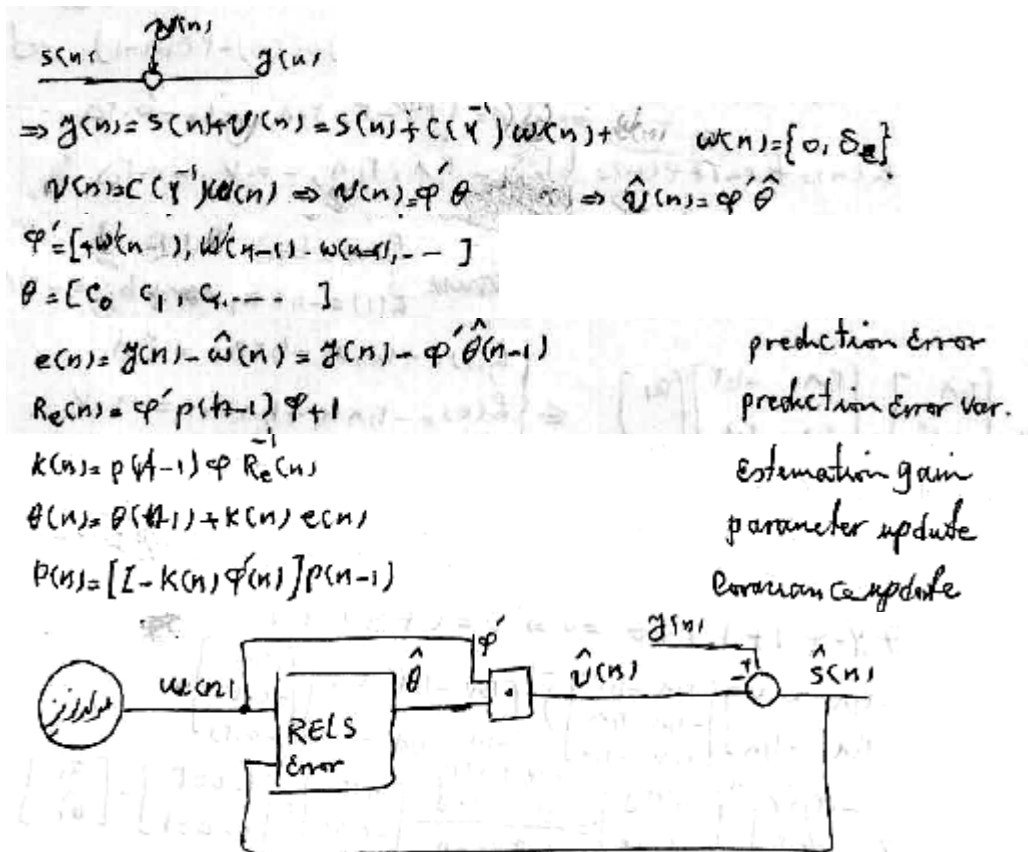 v(n)
s(n) y(n)
⇒ y(n) = s(n) + v(n) = s(n) + C(q⁻¹) w(n) + w(n) = {0, δe}
v(n) = C(q⁻¹) w(n) ⇒ v(n) = φ'θ ⇒ v̂(n) = φ'θ̂
φ' = [+w(n-1), w(n-1) - w(n-1), - - ]
θ = [c₀ c₁, c, .... ]
e(n) = y(n) - ŵ(n) = y(n) - φ'θ̂(n-1) prediction Error
Re(n) = φ' p(n-1) φ + 1 prediction Error Var.
k(n) = p(n-1) φ Re⁻¹(n) Estemation gain
θ(n) = θ(n-1) + k(n) e(n) parameter update
P(n) = [I - K(n) φ'(n)] p(n-1) Covariance update
φ' y(n)
w(n) θ̂ · v̂(n) + - ŝ(n)
RELS
Error